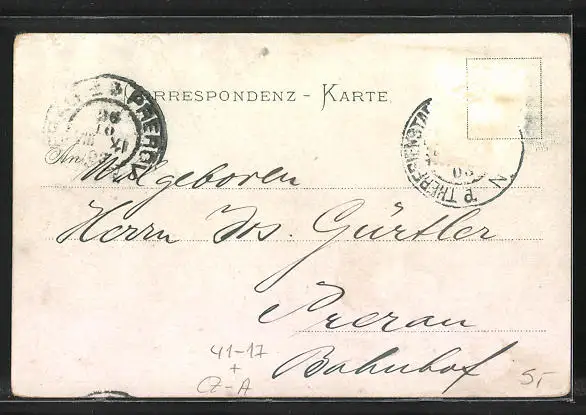 CORRESPONDENZ - KARTE
PREROV
P. THERESIENSTADT
An
Wolgeboren
Herrn Jos. Gürtler
Prerau
Bahnhof
41-17
+
CZ-A
5,-